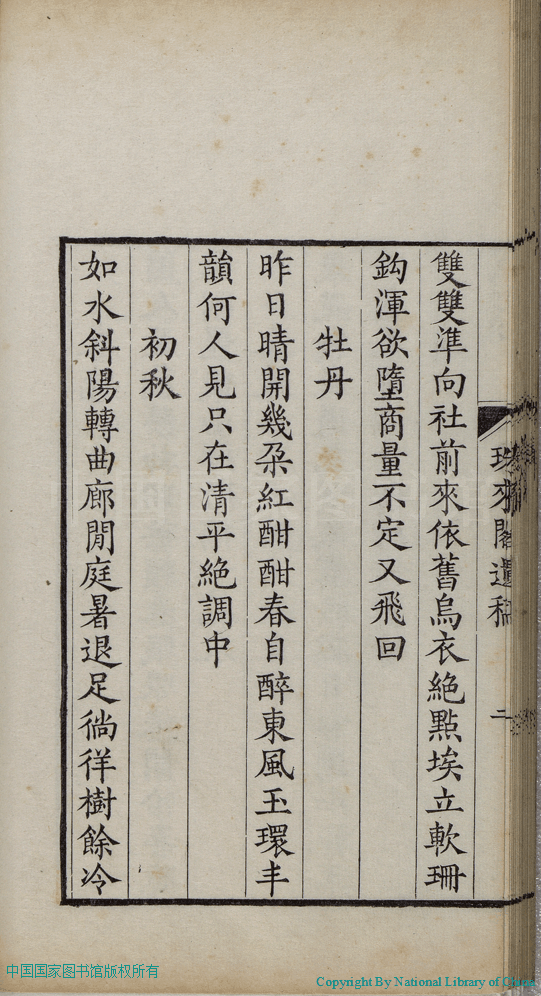 雙雙準向社前來依舊烏衣絶點埃立軟珊
鈎渾欲墮商量不定又飛回
牡丹
昨日晴開幾朶紅酣酣春自醉東風玉環丰
韻何人見只在清平絶調中
初秋
如水斜陽轉曲廊閒庭暑退足徜徉樹餘冷
來閣遺稿
二
中国国家图书馆版权所有
Copyright By National Library of China